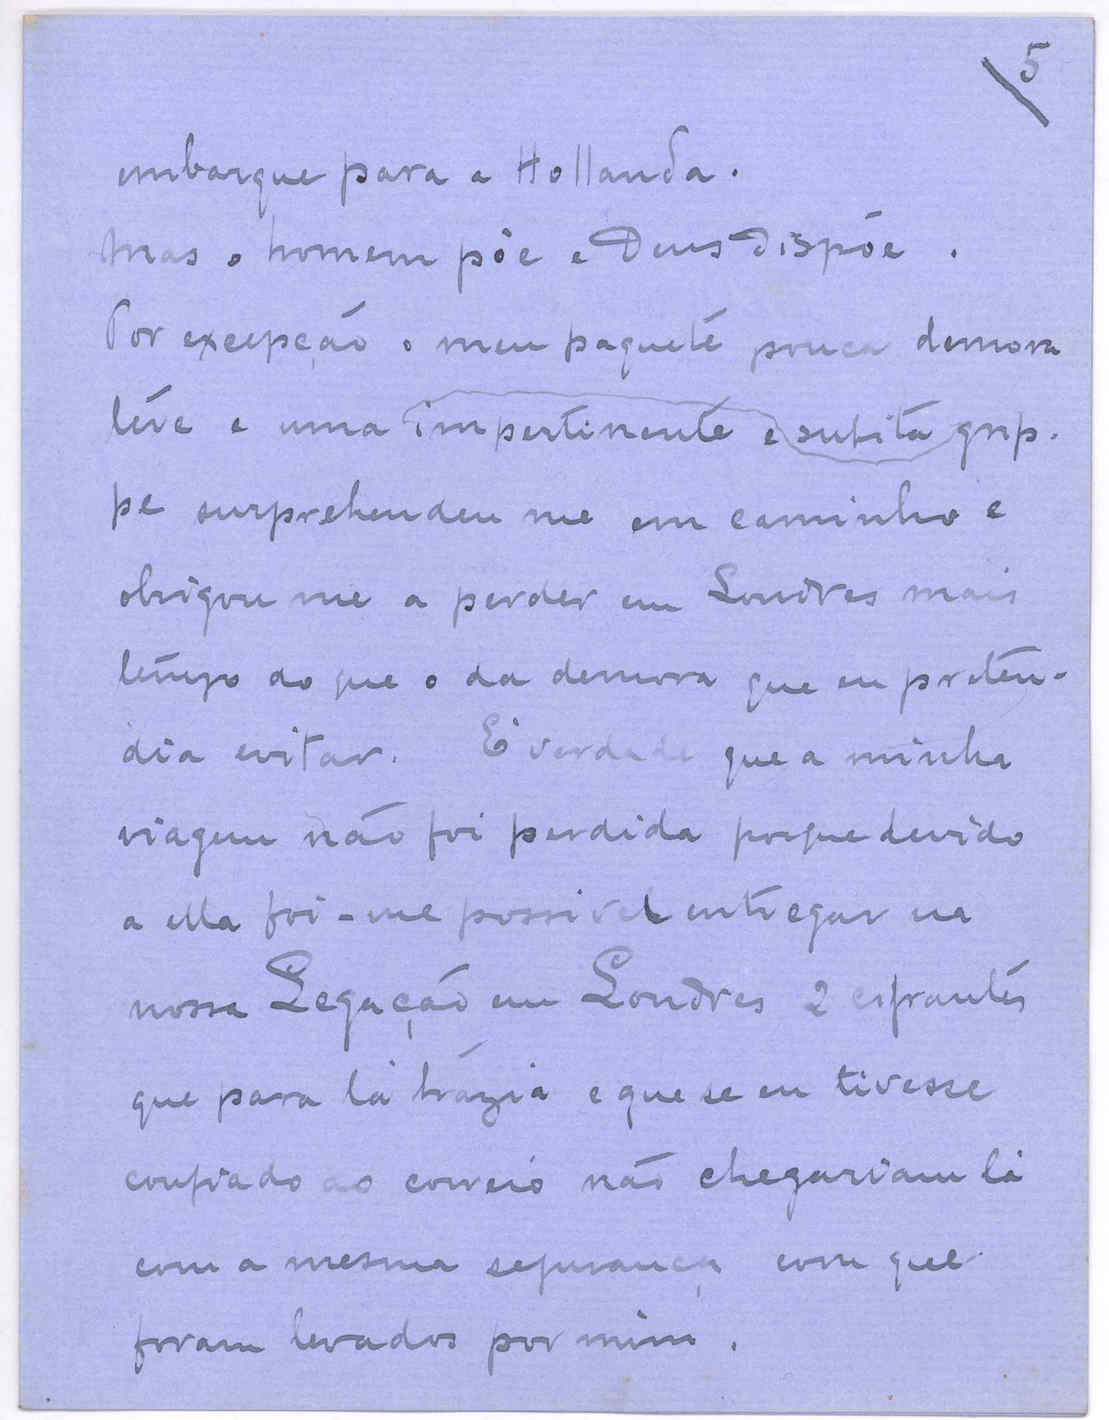 5
embarque para a Hollanda.
Mas o homem põe e Deus dispõe.
Por excepção o meu paquete pouca demora
teve e uma impertinente e subita grip-
pe surprehendeu me em caminho e
obrigou me a perder em Londres mais
tempo do que o da demora que eu preten-
dia evitar. E' verdade que a minha
viagem não foi perdida porque devido
a ella foi-me possivel entregar na
nossa Legação em Londres 2 cifrantes
que para lá trazia e que se eu tivesse
confiado ao correio não chegariam lá
com a mesma segurança com que
foram levados por mim.